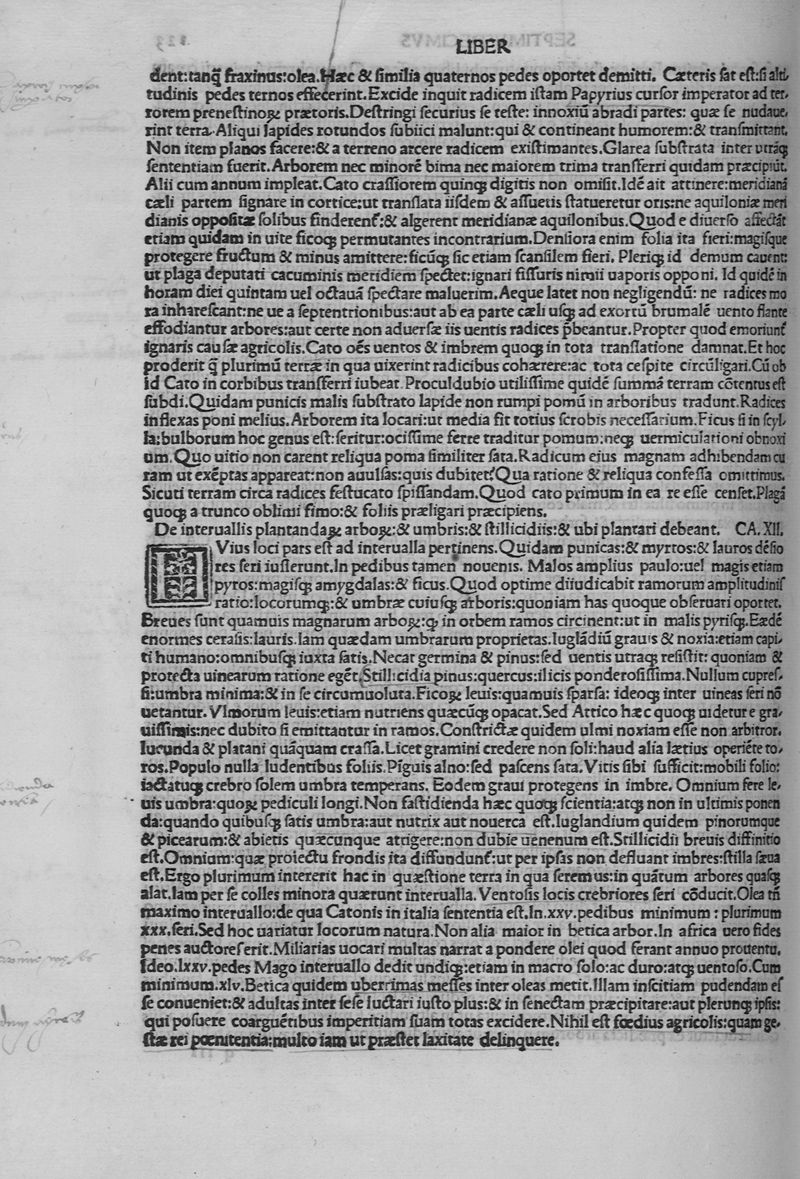 LIBER
dent:tanq̃ fraxinus:olea.Hæc & ſimilia quaternos pedes oportet demitti. Cæteris ſat eſt:ſi alti/
tudinis pedes ternos effecerint.Excide inquit radicem iſtam Papyrius curſor imperator ad ter/
rorem preneſtinoꝝ prætoris.Deſtringi ſecurius ſe teſte: innoxiũ abradi partes: quæ ſe nudaue/
rint terra.Aliqui lapides rotundos ſubiici malunt:qui & contineant humorem:& tranſmittant.
Non item planos facere:& a terreno arcere radicem exiſtimantes.Glarea ſubſtrata inter utrãq;
ſententiam fuerit.Arborem nec minorẽ bima nec maiorem trima tranſferri quidam præcipiũt.
Alii cum annum impleat.Cato craſſiorem quinq; digitis non omiſit.Idẽ ait attinere:meridianã
cæli partem ſignare in cortice:ut tranſlata iiſdem & aſſuetis ſtatueretur oris:ne aquiloniæ meri
dianis oppoſitæ ſolibus finderent᷑:& algerent meridianæ aquilonibus.Quod e diuerſo affectãt
etiam quidam in uite ficoq; permutantes incontrarium.Denſiora enim folia ita fieri:magiſque
protegere fructum & minus amittere:ficũq; ſic etiam ſcanſilem fieri. Pleriq; id demum cauent:
ut plaga deputati cacuminis meridiem ſpectet:ignari fiſſuris nimii uaporis opponi. Id quidẽ in
horam diei quintam uel octauã ſpectare maluerim.Aeque latet non negligendũ: ne radices mo
ra inhareſcant:ne ue a ſeptentrionibus:aut ab ea parte cæli uſq; ad exortũ brumalẽ uento flante
effodiantur arbores:aut certe non aduerſæ iis uentis radices p̃beantur.Propter quod emoriunt᷑
ignaris cauſæ agricolis.Cato oẽs uentos & imbrem quoq; in tota tranſlatione damnat.Et hoc
proderit q̃ plurimũ terræ in qua uixerint radicibus cohærere:ac tota ceſpite circũligari.Cũ ob
id Cato in corbibus tranſferri iubeat. Proculdubio utiliſſime quidẽ ſummã terram cõtentus eſt
ſubdi.Quidam punicis malis ſubſtrato lapide non rumpi pomũ in arboribus tradunt.Radices
inflexas poni melius.Arborem ita locari:ut media ſit totius ſcrobis neceſſarium.Ficus ſi in ſcyl/
la:bulborum hoc genus eſt:ſeritur:ociſſime ferre traditur pomum:neq; uermiculationi obnoxi
um.Quo uitio non carent reliqua poma ſimiliter ſata.Radicum eius magnam adhibendam cu
ram ut exẽptas appareat:non auulſas:quis dubitet?Qua ratione & reliqua confeſſa omittimus.
Sicuti terram circa radices feſtucato ſpiſſandam.Quod cato primum in ea re eſſe cenſet.Plagã
quoq; a trunco oblimi fimo:& foliis præligari præcipiens.
De interuallis plantandaꝝ arboꝝ:& umbris:& ſtillicidiis:& ubi plantari debeant. CA.XII.
Vius loci pars eſt ad interualla pertinens.Quidam punicas:& myrtos:& lauros dẽſio
res ſeri iuſſerunt.In pedibus tamen nouenis. Malos amplius paulo:uel magis etiam
pyros:magiſq; amygdalas:& ficus.Quod optime diiudicabit ramorum amplitudiniſ
ratio:locorumq;:& umbræ cuiuſq; arboris:quoniam has quoque obſeruari oportet.
Breues ſunt quamuis magnarum arboꝝ:ꝙ in orbem ramos circinent:ut in malis pyriſq;.Eædẽ
enormes ceraſis:lauris.Iam quædam umbrarum proprietas.Iuglãdiũ grauis & noxia:etiam capi/
ti humano:omnibuſq; iuxta ſatis.Necat germina & pinus:ſed uentis utraq; reſiſtit: quoniam &
protecta uinearum ratione egẽt.Stillicidia pinus:quercus:ilicis ponderoſiſſima.Nullum cupreſ/
ſi:umbra minima:& in ſe circumuoluta.Ficoꝝ leuis:quamuis ſparſa: ideoq; inter uineas ſeri nõ
uetantur. Vlmorum leuis:etiam nutriens quæcũq; opacat.Sed Attico hæc quoq; uidetur e gra/
uiſſimis:nec dubito ſi emittantur in ramos.Conſtrictæ quidem ulmi noxiam eſſe non arbitror.
Iucunda & platani quãquam craſſa.Licet gramini credere non ſoli:haud alia lætius operiẽte to/
ros.Populo nulla ludentibus foliis.Pĩguis alno:ſed paſcens ſata.Vitis ſibi ſufficit:mobili folio:
iactatuq; crebro ſolem umbra temperans. Eodem graui protegens in imbre. Omnium fere le/
uis umbra:quoꝝ pediculi longi.Non faſtidienda hæc quoq; ſcientia:atq; non in ultimis ponen
da:quando quibuſq; ſatis umbra:aut nutrix aut nouerca eſt.Iuglandium quidem pinorumque
& picearum:& abietis quæcunque attigere:non dubie uenenum eſt.Stillicidii breuis diffinitio
eſt.Omnium:quæ proiectu frondis ita diffundunt᷑:ut per ipſas non defluant imbres:ſtilla ſæua
eſt.Ergo plurimum intererit hac in quæſtione terra in qua ſeremus:in quãtum arbores quaſq;
alat.Iam per ſe colles minora quærunt interualla. Ventoſis locis crebriores ſeri cõducit.Olea tñ
maximo interuallo:de qua Catonis in italia ſententia eſt.In.xxv.pedibus minimum : plurimum
xxx.ſeri.Sed hoc uariatur locorum natura.Non alia maior in betica arbor.In africa uero fides
penes auctores erit.Miliarias uocari multas narrat a pondere olei quod ferant annuo prouentu.
Ideo.lxxv.pedes Mago interuallo dedit undiq;:etiam in macro ſolo:ac duro:atq; uentoſo.Cum
minimum.xlv.Betica quidem uberrimas meſſes inter oleas metit.Illam inſcitiam pudendam eſ
ſe conueniet:& adultas inter ſeſe luctari iuſto plus:& in ſenectam præcipitare:aut plerunq; ipſis:
qui poſuere coarguẽtibus imperitiam ſuam totas excidere.Nihil eſt fœdius agricolis:quam ge/
ſtæ rei pœnitentia:multo iam ut præſtet laxitate delinquere.